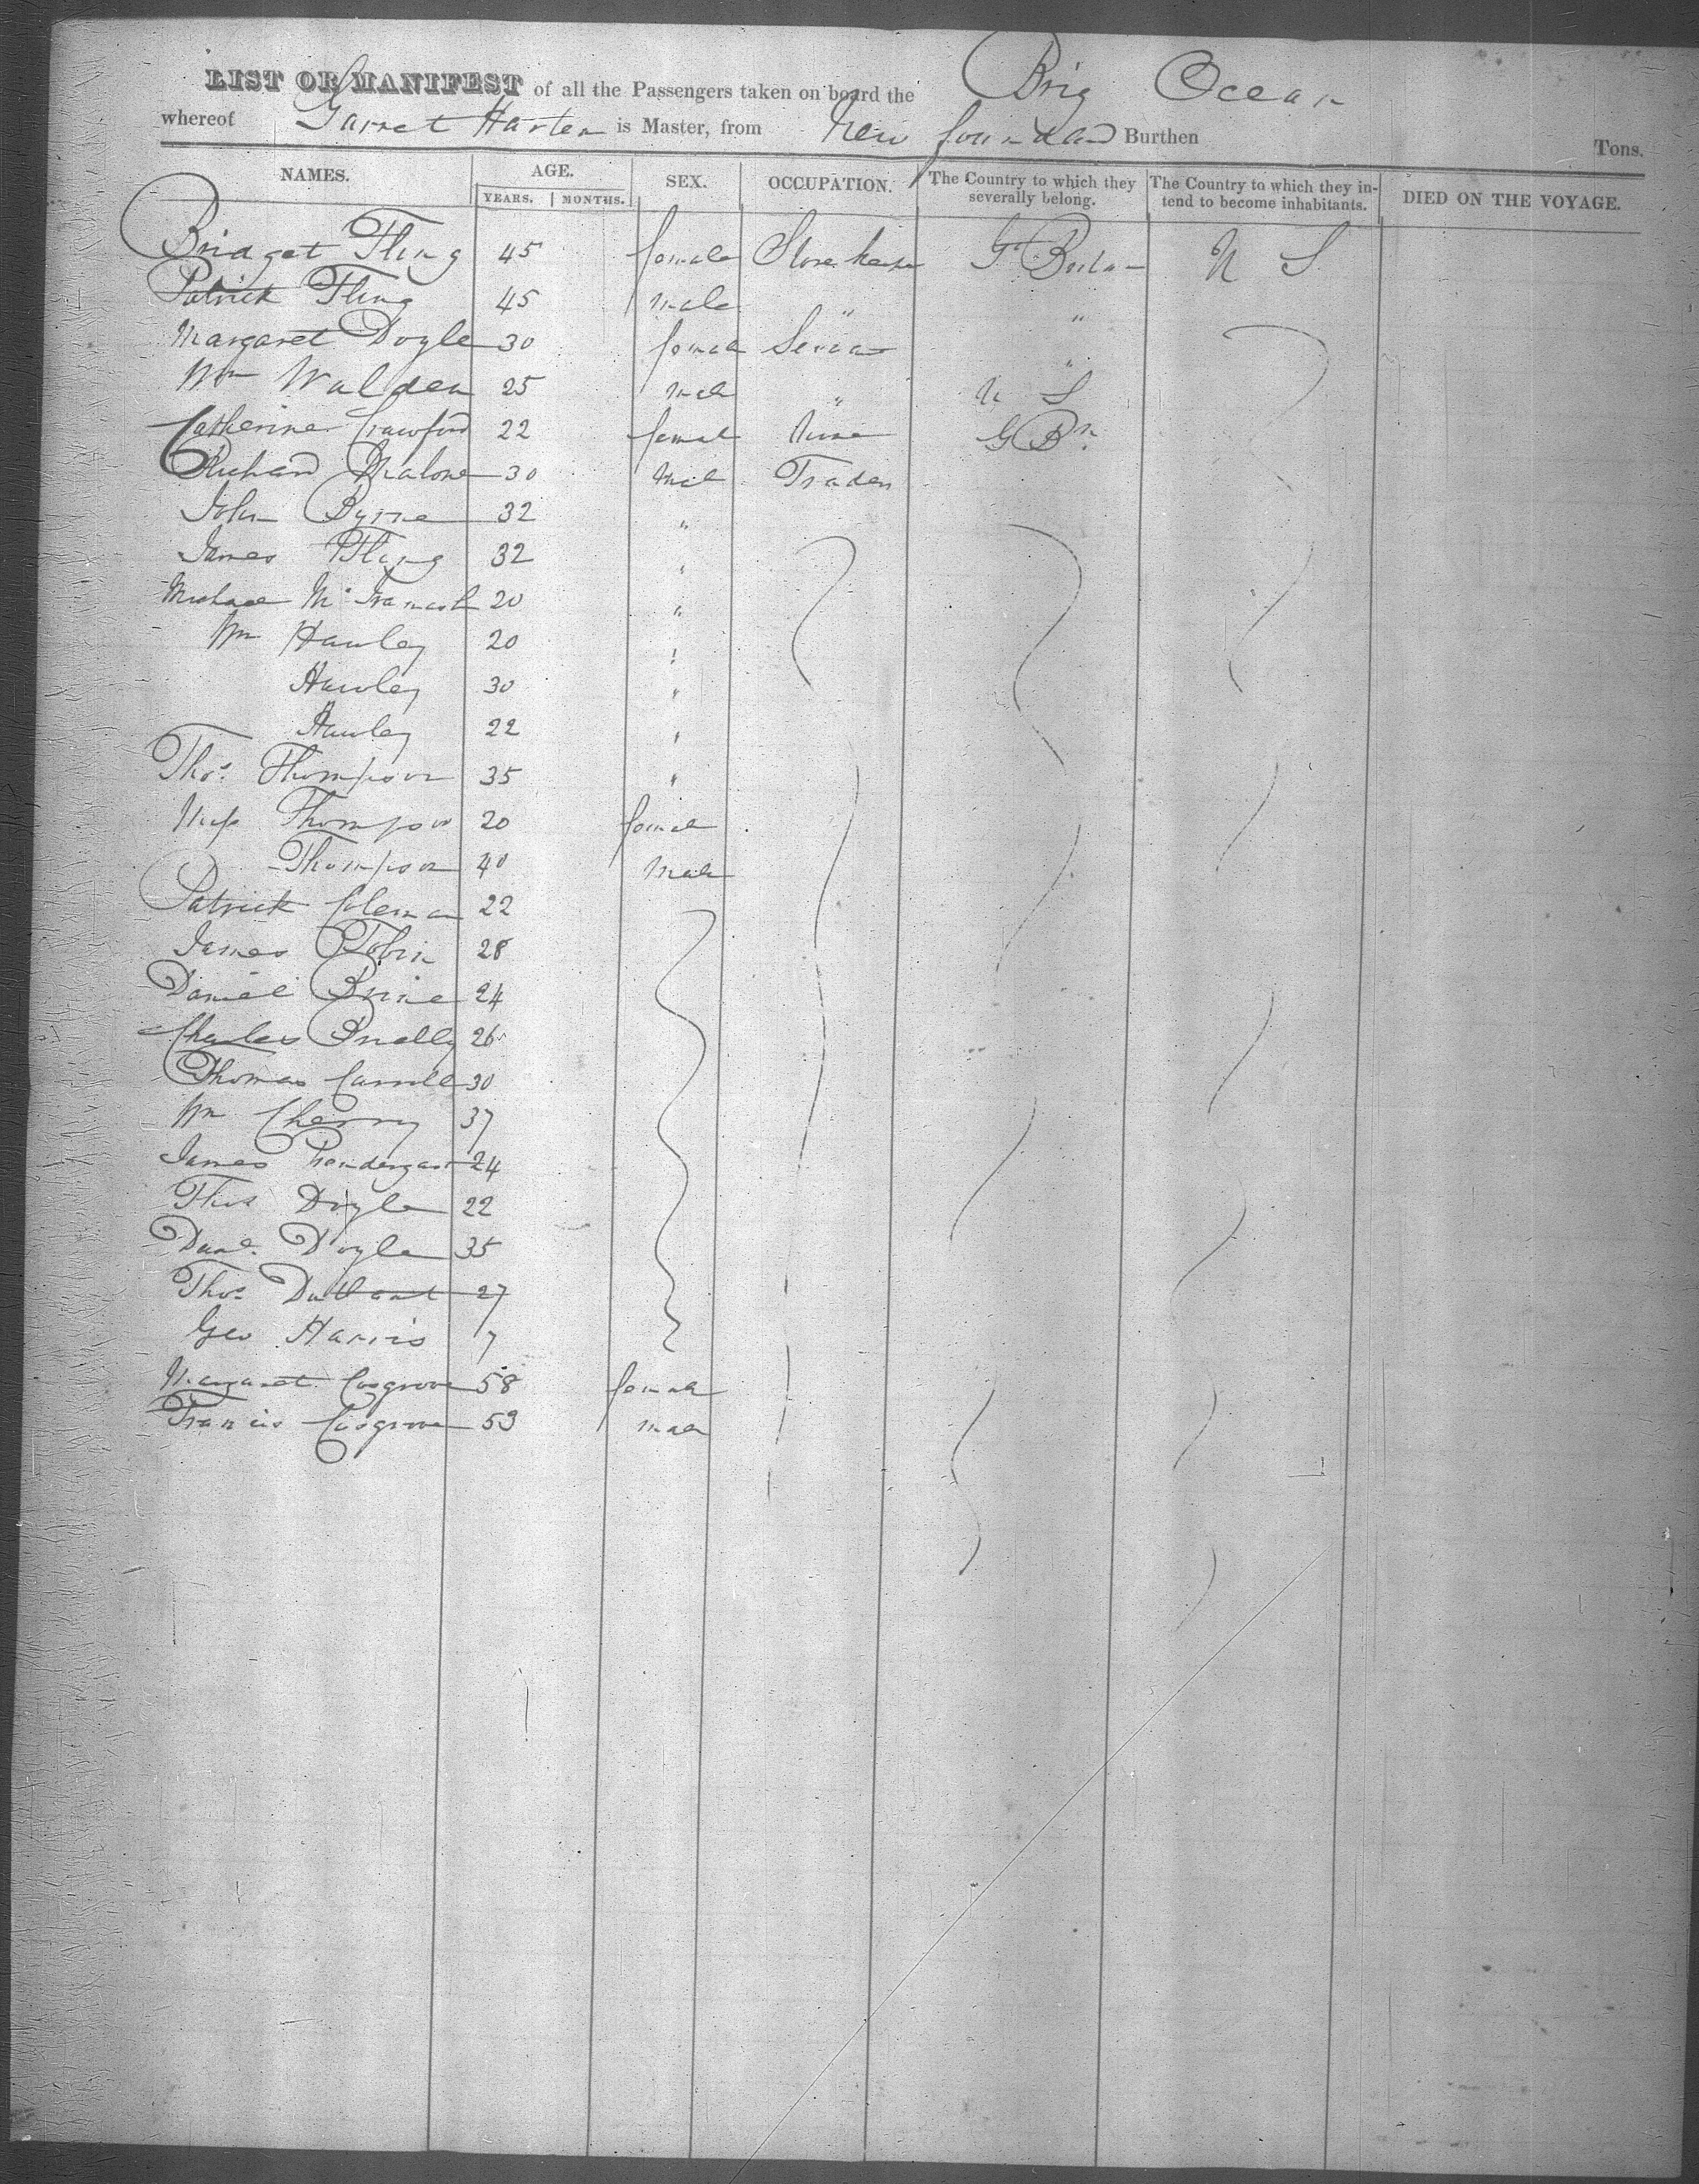 LIST OR MANIFEST of all the Passengers taken on board the Brig Ocean
whereof Garret Harten is Master, from New foundland Burthen Tons.
NAMES. AGE. SEX. OCCUPATION. The Country to which they severally belong. The Country to which they intend to become inhabitants. DIED ON THE VOYAGE.
YEARS. MONTHS.
Bridget Fling 45 female Store keeper Gt Britan U S
Patrick Fling 45 male " "
Margaret Doyle 30 femal "
Wm Walden 25 male " U S
Catherine Crawford 22 femal Nurse G Bn
Richard Malone 30 male Trader
John Byrne 32 "
James Fling 32 "
Michael 20 "
Wm Hawley 20 "
Hawley 30 "
Hawley 22 "
Thos. Thompson 35 "
Thompson 20 femal
Thompson 40 male
Patrick Coleman 22
James Tobin 28
Daniel Brine 24
Charles 26
Thomas Carroll 30
Wm Cherry 37
James Prendergast 24
Thos Doyle 22
Danl. Doyle 35
Thos 27
Geo Harris 7
Margaret Cosgrove 58 female
Francis Cosgrove 53 male